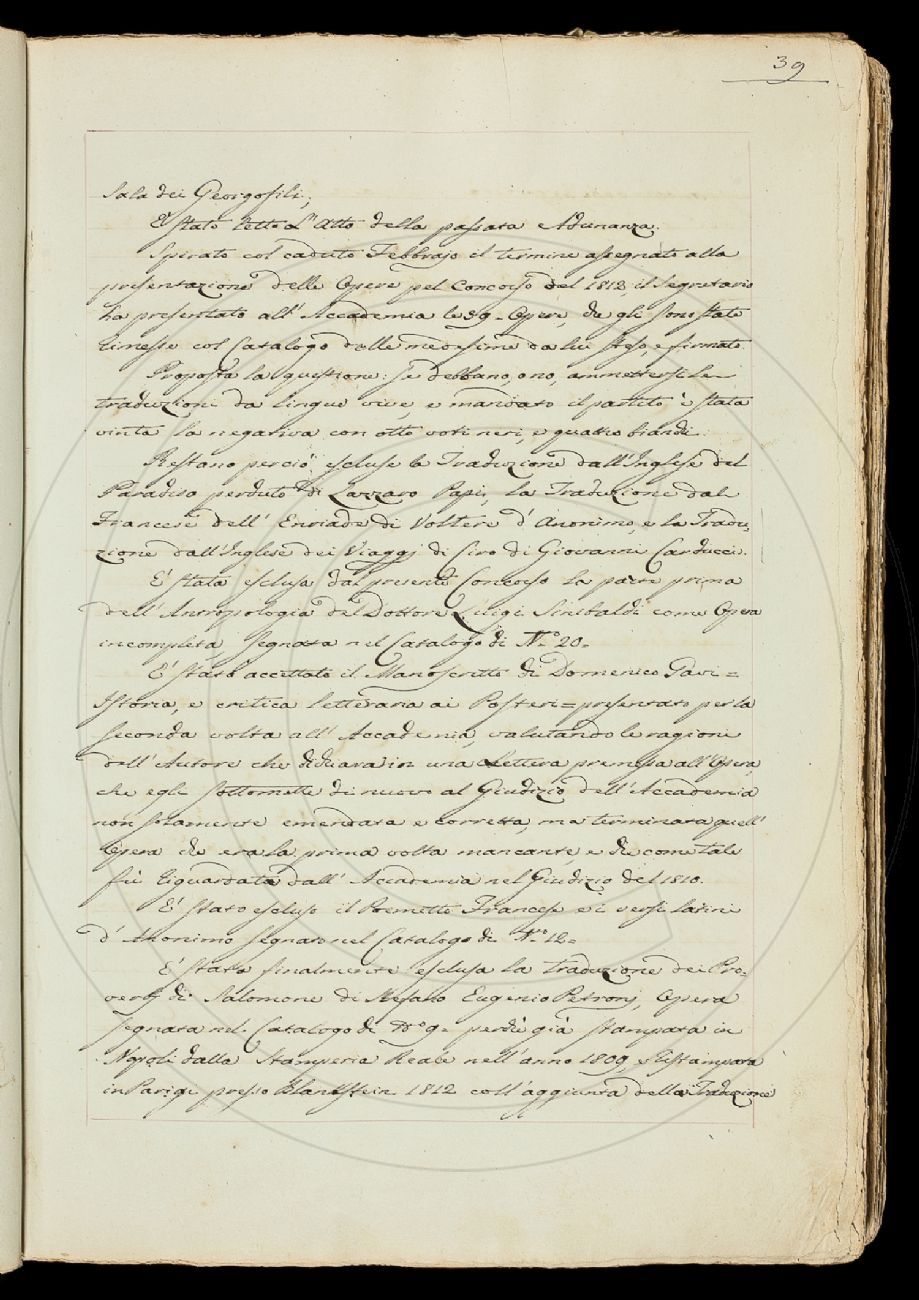 39
Sala dei Georgofili;
È stato letto l'Atto della passata Adunanza.
Spirato col caduto Febbrajo il termine assegnato alla
presentazione delle Opere pel Concorso del 1813, il Segretario
ha presentato all' Accademia le 39. Opere, che gli sono state
rimesse col Catalogo delle medesime da lui steso, e firmato.
Proposta la questione: se debbano, o no, ammettersi le
traduzioni da lingue vive, e mandato il partito è stata
vinta la negativa con otto voti neri, e quattro bianchi.
Restano perciò escluse la Traduzione dall'Inglese del
Paradiso perduto di Lazzaro Papi, la Traduzione dal
Francese dell' Enriade di Voltere d' Anonimo, e la Tradu,
zione dall'Inglese dei Viaggj di Ciro di Giovanni Carducci.
È stata esclusa dal presente Concorso la parte prima
dell' Antropologia del Dottore Luigi Sinibaldi come Opera
incompleta, segnata nel Catalogo di N.º 20.
È stato accettato il Manoscritto di Domenico Gavi =
Istoria, e critica letteraria ai Posteri = presentato per la
seconda volta all' Accademia, valutando le ragioni
dell' Autore che dichiara in una Lettera premessa all'Opera,
che egli sottomette di nuovo al Giudizio dell' Accademia
non solamente emendata e corretta, ma terminata quell'
Opera che era la prima volta mancante, e che come tale
fù riguardata dall' Accademia nel Giudizio del 1810.
È stato escluso il Poemetto Francese e i versi latini
d' Anonimo segnato nel Catalogo di N.º 12.
È stata finalmente esclusa la traduzione dei Pro-
verbj di Salomone di Stefano Eugenio Petronj, Opera
segnata nel Catalogo di N.º 9. perchè già stampata in
Napoli dalla Stamperia Reale nell'anno 1809, e ristampata
in Parigi presso Blankstein 1812 coll'aggiunta della Traduzione